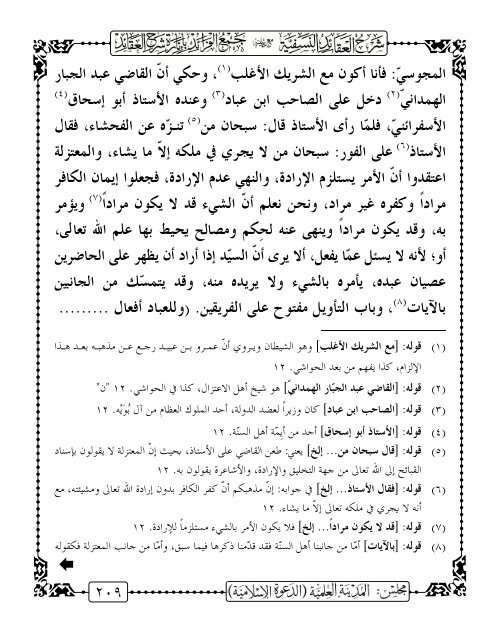 شرح العقائد النسفية مع جمع الفرائد بإنارة شرح العقائد
المجوسيّ: فأنا أكون مع الشريك الأغلب(١)، وحكي أنّ القاضي عبد الجبار
الهمدانيّ(٢) دخل على الصاحب ابن عباد(٣) وعنده الأستاذ أبو إسحاق(٤)
الأسفرائنيّ، فلمّا رأى الأستاذ قال: سبحان من(٥) تنـزّه عن الفحشاء، فقال
الأستاذ(٦) على الفور: سبحان من لا يجري في ملكه إلاّ ما يشاء، والمعتزلة
اعتقدوا أنّ الأمر يستلزم الإرادة، والنهي عدم الإرادة، فجعلوا إيمان الكافر
مراداً وكفره غير مراد، ونحن نعلم أنّ الشيء قد لا يكون مراداً(٧) ويؤمر
به، وقد يكون مراداً وينهى عنه لحِكم ومصالح يحيط بها علم الله تعالى،
أو؛ لأنه لا يسئل عمّا يفعل، ألا يرى أنّ السيّد إذا أراد أن يظهر على الحاضرين
عصيان عبده، يأمره بالشيء ولا يريده منه، وقد يتمسّك من الجانبين
بالآيات(٨)، وباب التأويل مفتوح على الفريقين. (وللعباد أفعال .........
(١) قوله: [مع الشريك الأغلب] وهو الشيطان ويروي أنّ عمرو بـن عبيـد رجـع عـن مذهبـه بعـد هـذا
الإلزام، كذا يفهم من بعد الحواشي. ١٢
(٢) قوله: [القاضي عبد الجبّار الهمدانيّ] هو شيخ أهل الاعتزال، كذا في الحواشي. ١٢ "ن"
(٣) قوله: [الصاحب ابن عباد] كان وزيراً لعضد الدولة، أحد الملوك العظام من آل بُوَيْه. ١٢
(٤) قوله: [الأستاذ أبو إسحاق] أحد من أيمّة أهل السنّة. ١٢
(٥) قوله: [قال سبحان من... إلخ] يعني: طعن القاضي على الأستاذ، بحيث إنّ المعتزلة لا يقولون بإسناد
القبائح إلى الله تعالى من جهة التخليق والإرادة، والأشاعرة يقولون به. ١٢
(٦) قوله: [فقال الأستاذ... إلخ] في جوابه: إنّ مذهبكم أنّ كفر الكافر بدون إرادة الله تعالى ومشيئته، مع
أنه لا يجري في ملكه تعالى إلاّ ما يشاء. ١٢
(٧) قوله: [قد لا يكون مراداً... إلخ] فلا يكون الأمر بالشيء مستلزماً للإرادة. ١٢
(٨) قوله: [بالآيات] أمّا من جانبنا أهل السنّة فقد قدّمنا ذكرها فيما سبق، وأمّا من جانب المعتزلة فكقوله
مجلس: المدينة العلمية (الدعوة الإسلامية)
٢٠٩